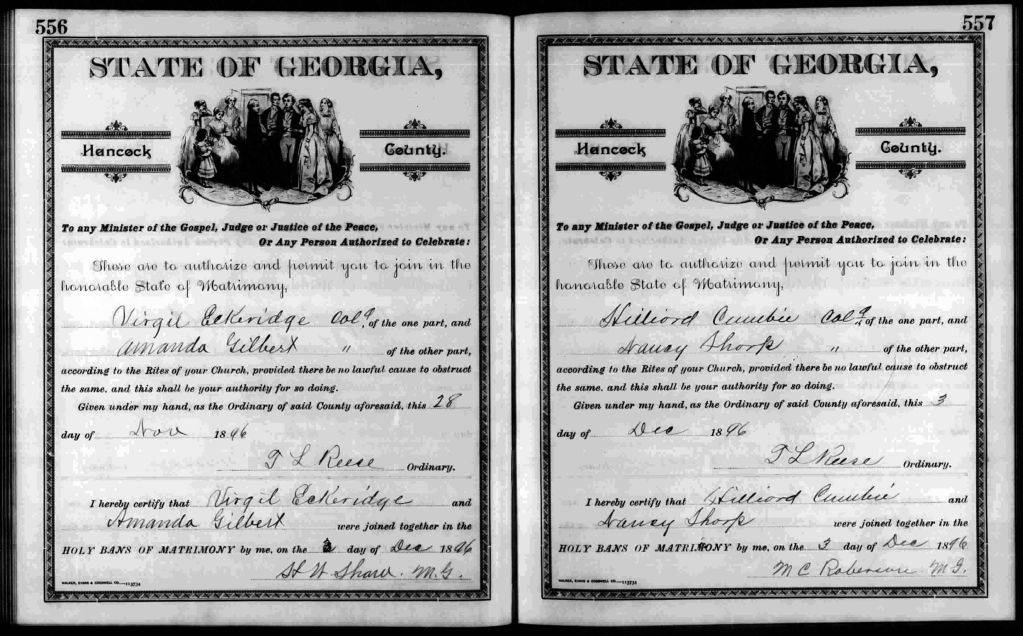 556
STATE OF GEORGIA,
Hancock County.
To any Minister of the Gospel, Judge or Justice of the Peace,
Or Any Person Authorized to Celebrate:
These are to authorize and permit you to join in the
honorable State of Matrimony,
Virgil Eckeridge Cold. of the one part, and
Amanda Gilbert " of the other part,
according to the Rites of your Church, provided there be no lawful cause to obstruct
the same, and this shall be your authority for so doing.
Given under my hand, as the Ordinary of said County aforesaid, this 28
day of Nov 1896
T L Reese Ordinary.
I hereby certify that Virgil Eckeridge and
Amanda Gilbert were joined together in the
HOLY BANS OF MATRIMONY by me, on the day of Dec 1896
St W Shaw. M.G.
557
STATE OF GEORGIA,
Hancock County.
To any Minister of the Gospel, Judge or Justice of the Peace,
Or Any Person Authorized to Celebrate:
These are to authorize and permit you to join in the
honorable State of Matrimony,
Hilliord Cumbie Cold. of the one part, and
Nancy Thorp " of the other part,
according to the Rites of your Church, provided there be no lawful cause to obstruct
the same, and this shall be your authority for so doing.
Given under my hand, as the Ordinary of said County aforesaid, this 3
day of Dec 1896
T L Reese Ordinary.
I hereby certify that Hilliord Cumbie and
Nancy Thorp were joined together in the
HOLY BANS OF MATRIMONY by me, on the 3 day of Dec 1896
M C Roberson M.G.